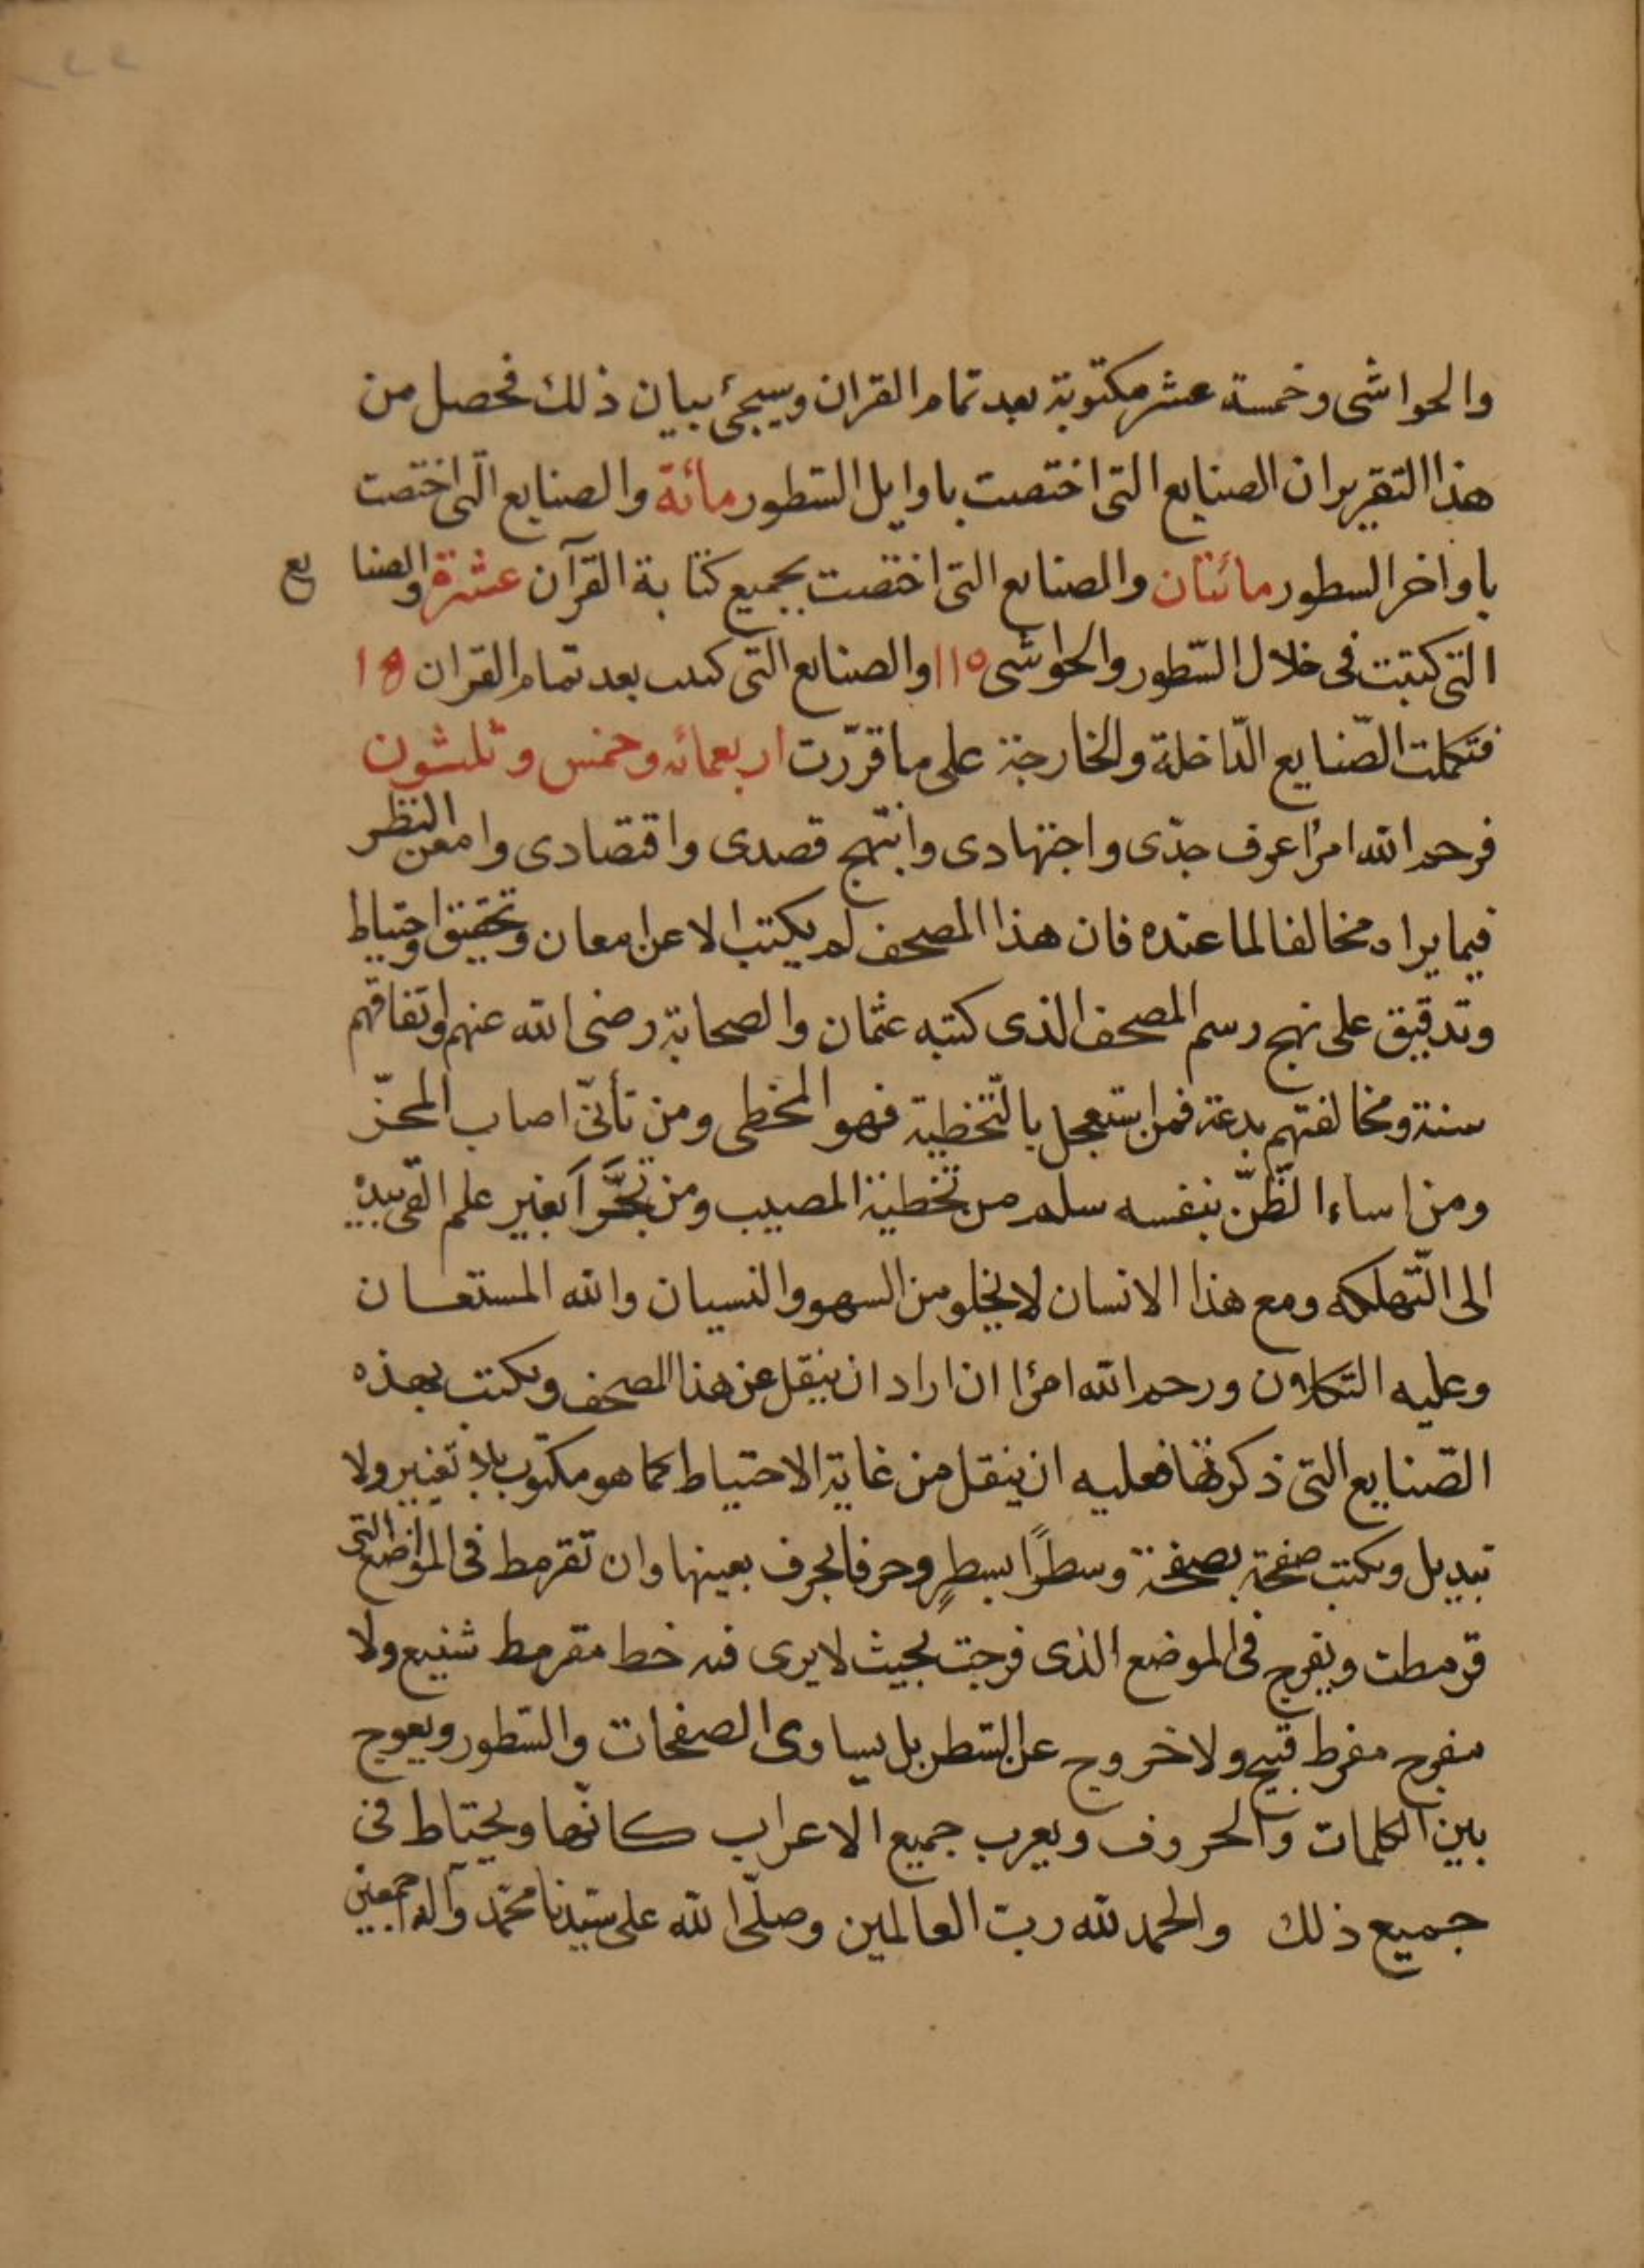 والحواشى وخمسة عشر مكتوبة بعد تمام القران وسيجئ بيان ذلك فحصل من
هذا التقرير ان الصنايع التى اختصت باوايل السّطور مائة والصنايع الّتى اختصت
باواخر السطور مائتان والصنايع التى اختصت بجميع كتابة القرآن عشرة والصنايع
التى كتبت فى خلال السّطور والحواشى ١١٥ والصنايع التى كتبت بعد تمام القران ١٥
فتكملت الصّنايع الدّاخلة والخارجة على ما قرّرت اربعمائه وخمس وثلثون
فرحم الله امرًا عرف جدّى واجتهادى وانتهج قصدى واقتصادى وامعن النظر
فيما يراه مخالفا لما عنده فان هذا المصحف لم يكتب الا عن امعان وتحقيق واحتياط
وتدقيق على نهج رسم المصحف الذى كتبه عثمان والصحابة رضى الله عنهم واتفاقهم
سنة ومخالفتهم بدعة فمن استعجل بالتّخطية فهو المخطى ومن تأنّى اصاب المحزّ
ومن اساء الظّنّ بنفسه سلم من تخطية المصيب ومن تجرّأ بغير علم القى بيده
الى التّهلكه ومع هذا الانسان لا يخلو من السهو والنسيان والله المستعان
وعليه التكلان ورحم الله امرًا ان اراد ان ينقل عن هذا المصحف ويكتب بهذه
الصّنايع التى ذكرتها فعليه ان ينقل من غاية الاحتياط كما هو مكتوب بلا تغيير ولا
تبديل ويكتب صفحة بصفحة وسطرًا بسطرٍ وحرفا بحرف بعينها وان تقرمط فى المواضع التى
قرمطت ويفرج فى الموضع الذى فرجت بحيث لا يرى فيه خط مقرمط شنيع ولا
مفرج مفرط قبيح ولا خروج عن السّطر بل يساوى الصفحات والسّطور ويعوج
بين الكلمات والحروف ويعرب جميع الاعراب كانّها ويحتاط فى
جميع ذلك والحمد لله ربّ العالمين وصلّى الله على سيّدنا محمّد وآله اجمعين